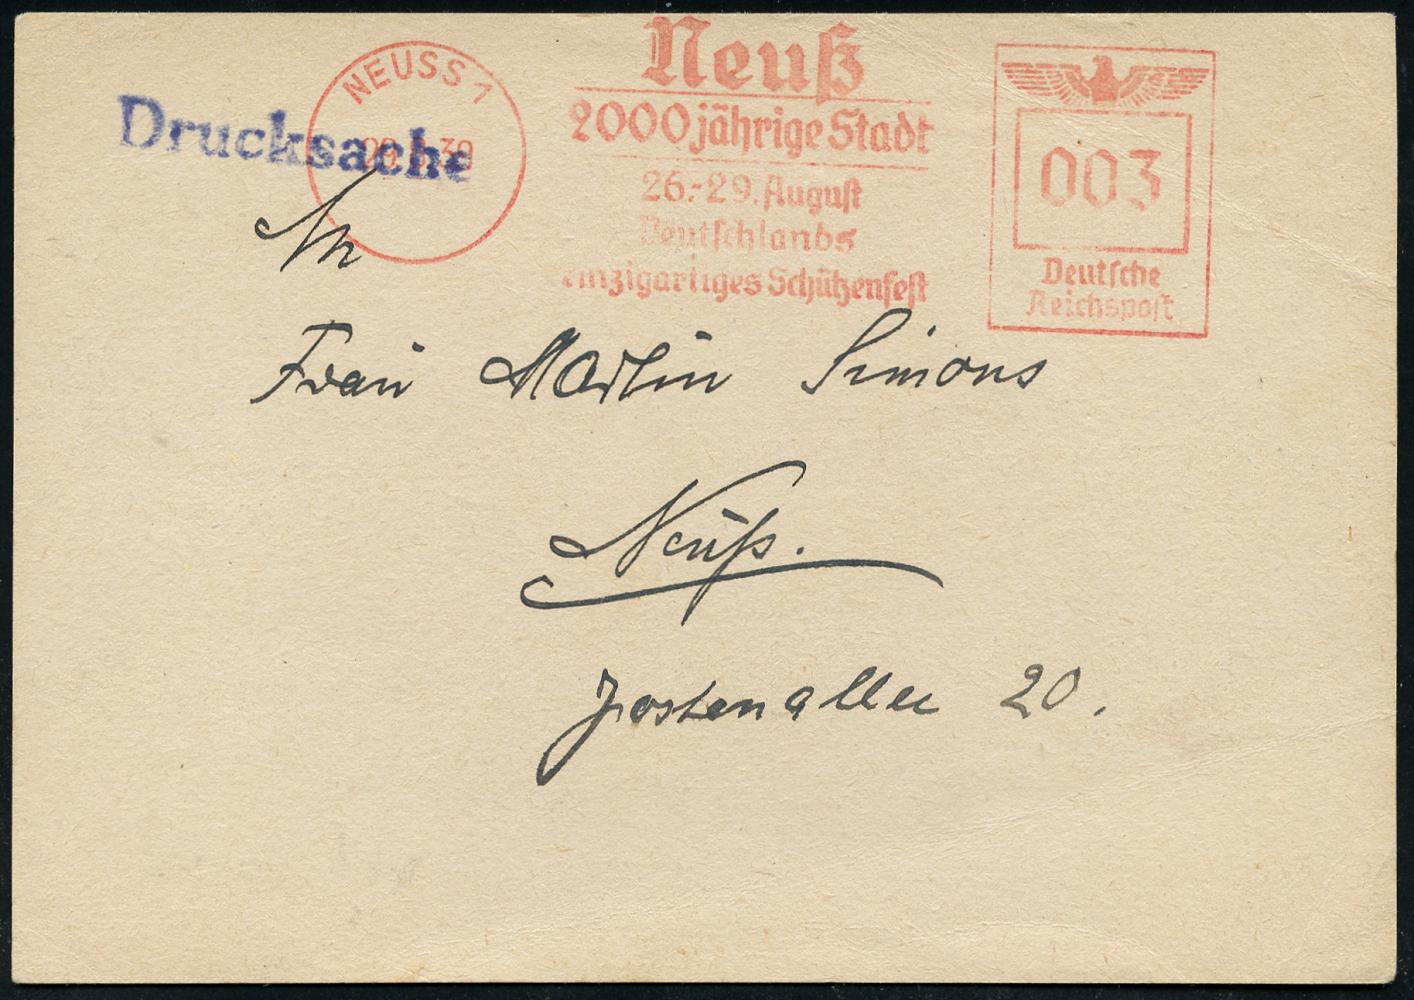 Neuß
2000jährige Stadt
26.-29. August
Deutschlands
einzigartiges Schützenfest
NEUSS 1
Drucksache
003
Deutsche
Reichspost
An
Frau Martin Simons
Neuß.
Jostenallee 20.